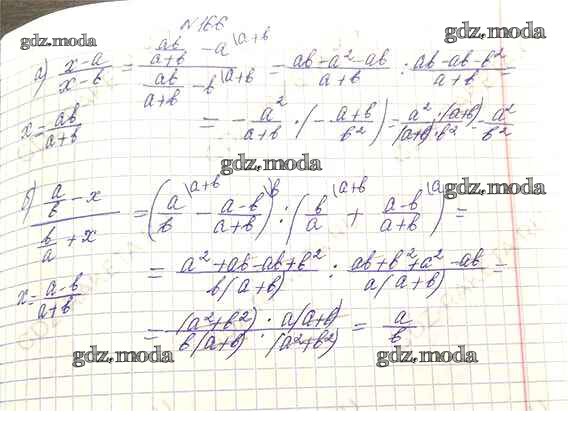 №166
gdz.moda gdz.moda
а) (x-a)/(x-b) = (ab/(a+b) - a\a+b)/(ab/(a+b) - b\a+b) = (ab-a²-ab)/(a+b) : (ab-ab-b²)/(a+b) =
x = ab/(a+b) = - a²/(a+b) · (- (a+b)/b²) = (a² · (a+b))/((a+b) · b²) = a²/b²
gdz.moda
gdz.moda
б) (a/b - x)/(b/a + x) = (a/b\a+b - (a-b)/(a+b)\b) : (b/a\a+b + (a-b)/(a+b)\a) =
x = (a-b)/(a+b) = (a²+ab-ab+b²)/(b(a+b)) : (ab+b²+a²-ab)/(a(a+b)) =
= ((a²+b²) · a(a+b))/(b(a+b) · (a²+b²)) = a/b
gdz.moda gdz.moda gdz.moda